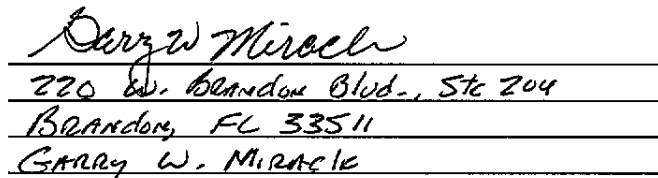 Garry W Miracle
220 W. Brandon Blvd., Ste 204
Brandon, FL 33511
GARRY W. MIRACLE